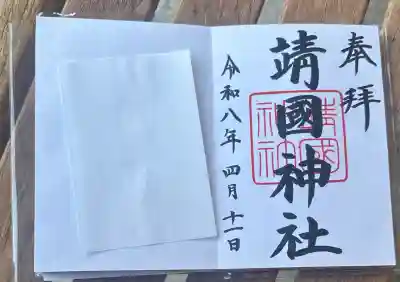 奉拝
靖國神社
靖國
神社
令和八年四月十一日